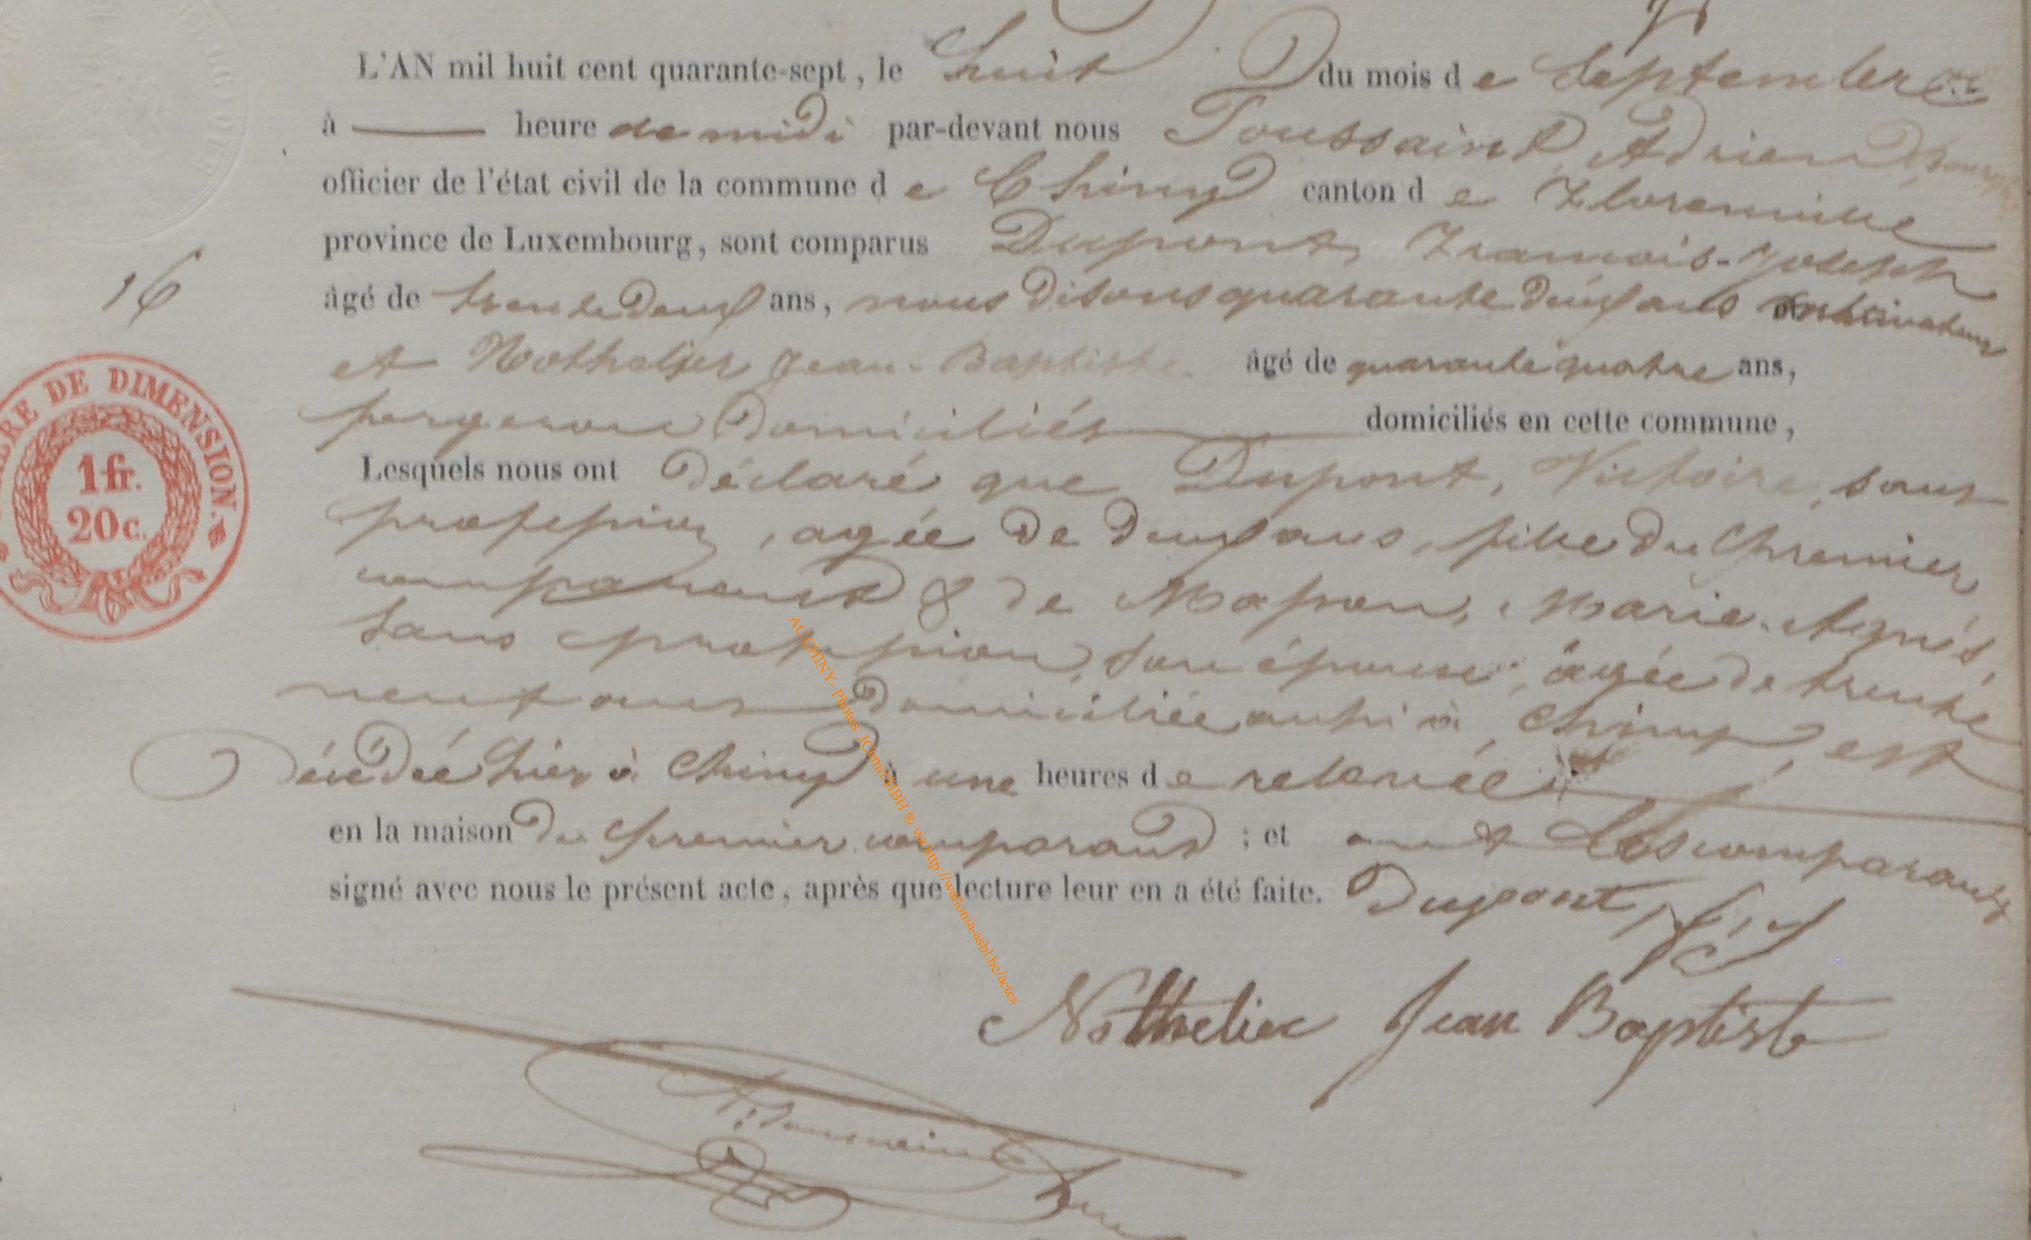 L'AN mil huit cent quarante-sept, le huit du mois de Septembre
à heure de midi par-devant nous Toussaint, Adrien
officier de l'état civil de la commune de Chiny canton de Florenville
province de Luxembourg, sont comparus Dupont, Francois-Joseph
âgé de trente deux ans, nous disons quarante deux ans
16
et Nothelier Jean-Baptiste âgé de quarante quatre ans,
forgeron domiciliés domiciliés en cette commune,
Lesquels nous ont déclaré que Dupont, Victoire, sans
profession, agée de deux ans, fille du premier
comparant & de Masson, Marie-Agnès,
sans profession, son épouse, agée de trente
neuf ans domiciliée aussi à Chiny, est
décédée hier à Chiny à une heures de relevée
en la maison du premier comparant ; et ont les comparants
signé avec nous le présent acte, après que lecture leur en a été faite. Dupont, fj
Nothelier Jean Baptiste
A: Toussaint
TIMBRE DE DIMENSION.
1 fr.
20 c.
AC CHINY - Photos via http://wallonia-asbl.be/actes